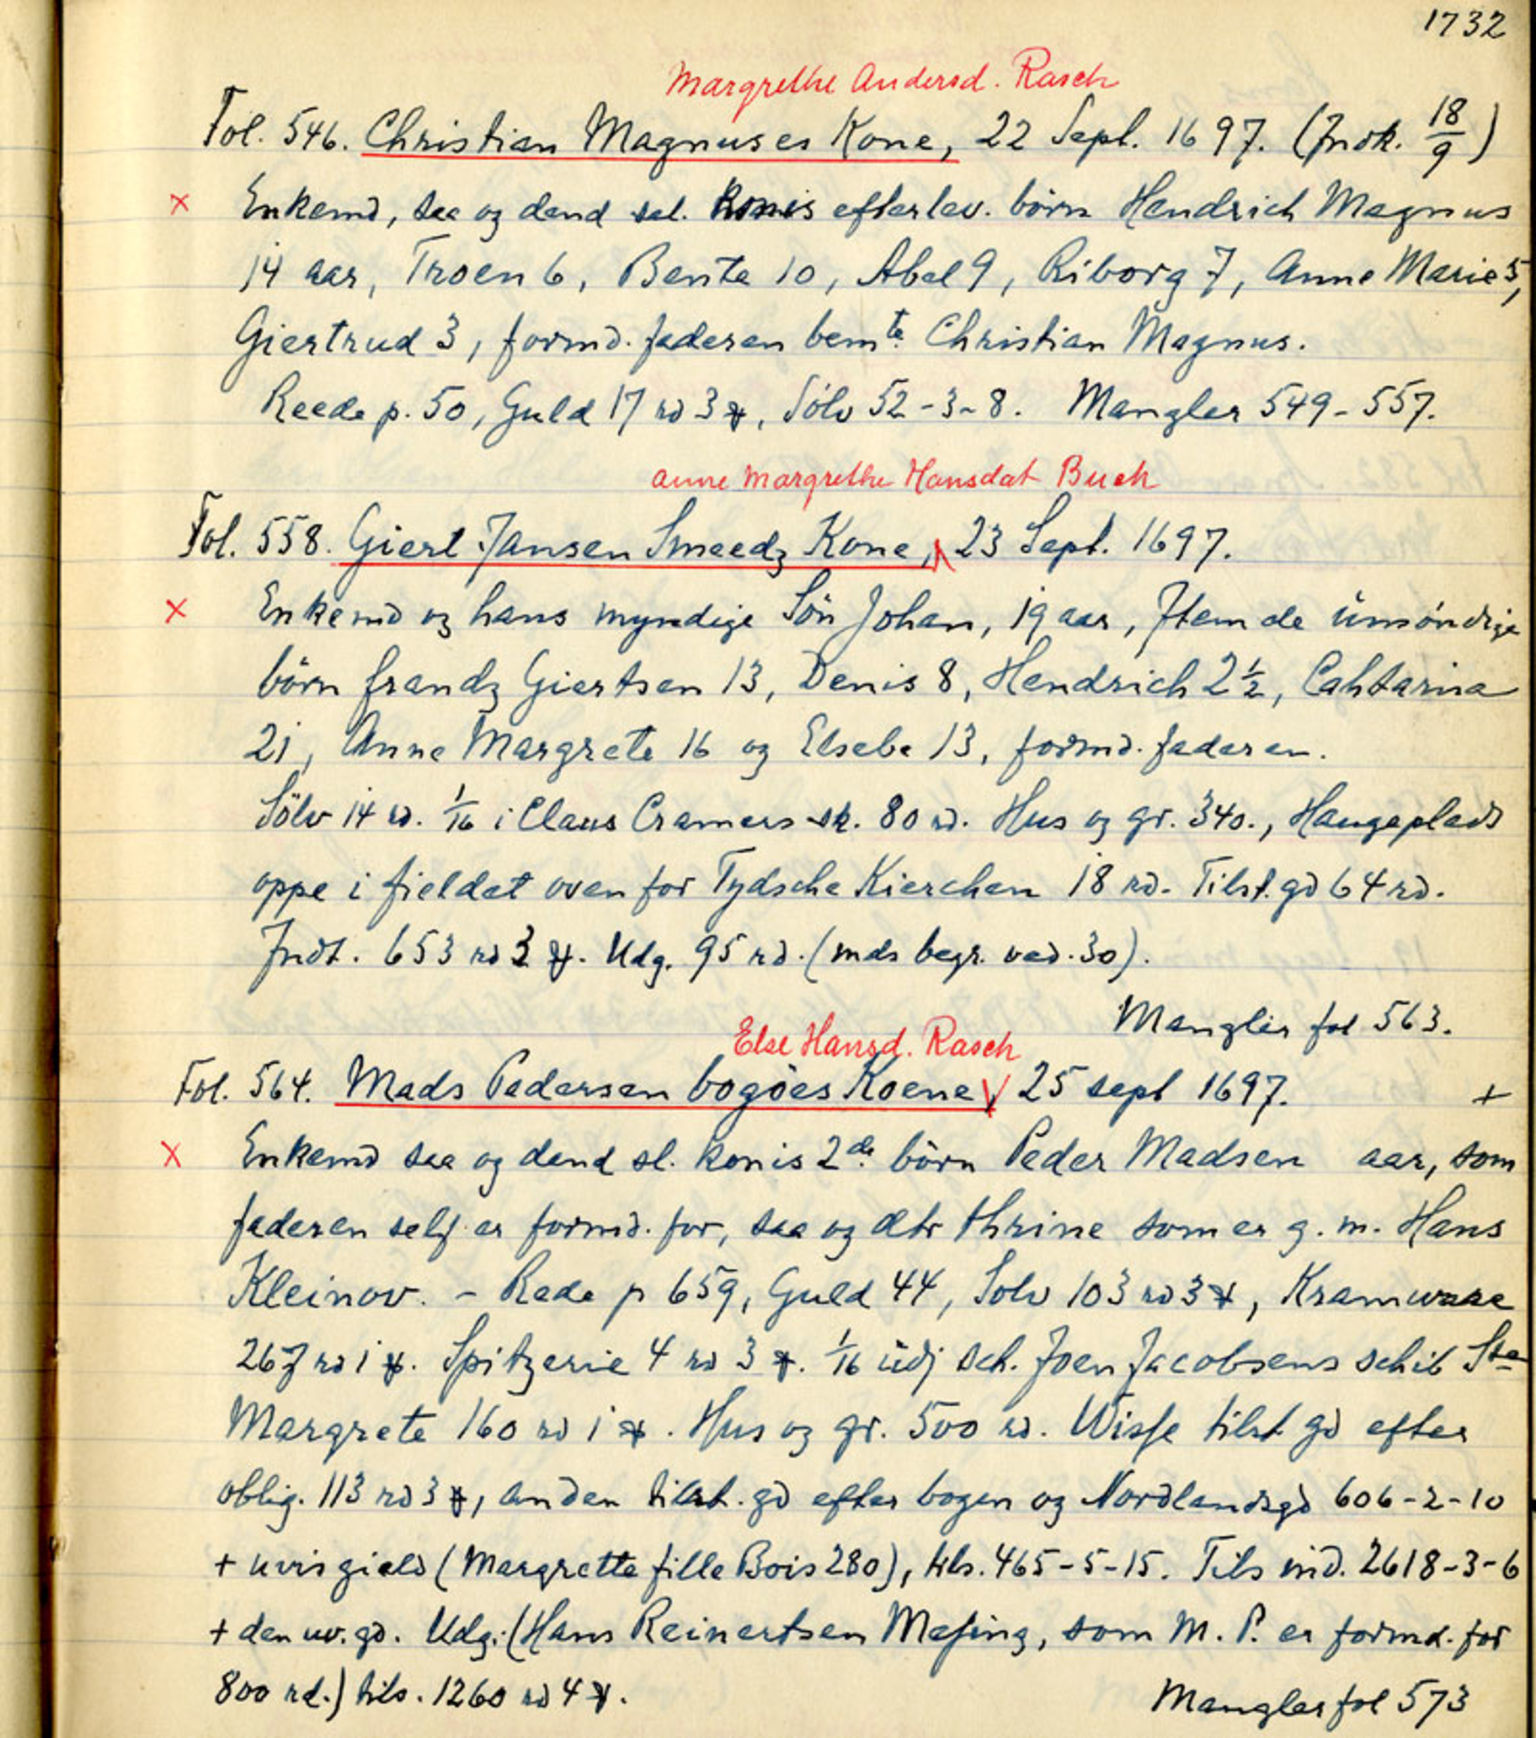 1732
Margrethe Andersd. Rasch
Fol. 546. Christian Magnuses Kone, 22 Sept. 1697. (Indk. 18/9)
x Enkemd, saa og dend sal. konis efterlev. börn Hendrich Magnus
14 aar, Troen 6, Bente 10, Abel 9, Riborg 7, Anne Marie 5,
Giertrud 3, formd. faderen bemte Christian Magnus.
Reede p. 50, Guld 17 rd 3 ℔, Sölv 52-3-8. Mangler 549-557.
Anne Margrethe Hansdat Buch
Fol. 558. Giert Jansen Smeedz Kone, 23 Sept. 1697.
x Enkemd og hans myndige Sön Johan, 19 aar, Item de ůmöndige
börn frandz Giertsen 13, Denis 8, Hendrich 2 1/2, Cahtarina
21, Anne Margrete 16 og Elsebe 13, formd. faderen.
Sölv 14 rd. 1/16 i Claus Cramers sk. 80 rd. Hus og gr. 340., Haugeplads
oppe i fieldet oven for Tydsche Kierchen 18 rd. Tilst. gd 64 rd.
Indt. 653 rd 3 ℔. Udg. 95 rd. (mds begr. ved. 30).
Mangler fol 563.
Else Hansd. Rasch
Fol. 564. Mads Pedersen bogöes Koene, 25 sept 1697. +
x Enkemd saa og dend sl. konis 2de börn Peder Madsen aar, som
faderen self er formd. for, saa og dtr thrine som er g. m. Hans
Kleinov. - Rede p 659, Guld 44, Sölv 103 rd 3 ℔, Kramwaae
267 rd 1 ℔. Spitzerie 4 rd 3 ℔. 1/16 ůdj sch. Joen Jacobsens schib Sta
Margrete 160 rd 1 ℔. Hus og gr. 500 rd. Wisse tilst gd efter
oblig. 113 rd 3 ℔, anden tilst. gd efter bogen og Nordlandsgd 606-2-10
+ uvis gield (Margrette fille Bois 280), tils. 465-5-15. Tils ind. 2618-3-6
+ den uv. gd. Udg. (Hans Reinertsen Mesing, som M. P. er formd. for
800 rd.) tils. 1260 rd 4 ℔.
Mangler fol 573